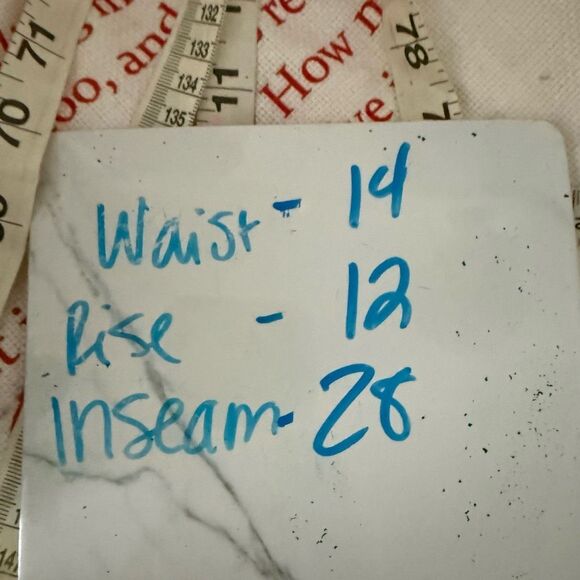 132
133
134
135
11
71
70
oo, and
re
How m
ve i
78
Waist - 14
Rise - 12
Inseam - 28